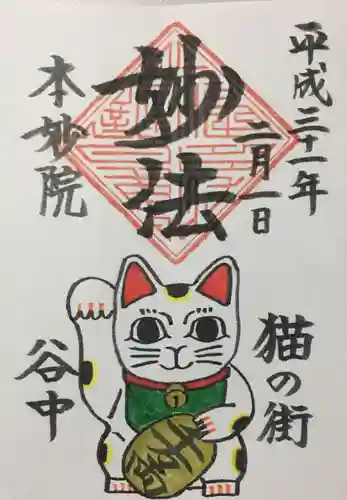 平成三十一年
二月一日
妙法
本妙院
猫の街
谷中